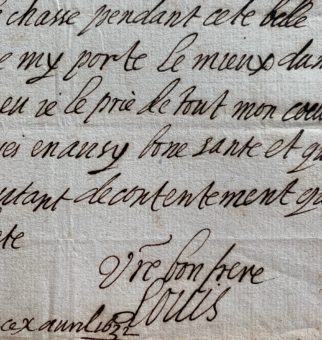 chasse pendant cete belle
my porte le mieux dan
ie le prie de tout mon cœu
en ausy bone sante et qu
autant de contentement qu
Vre bon frere
Louis
ce x avril